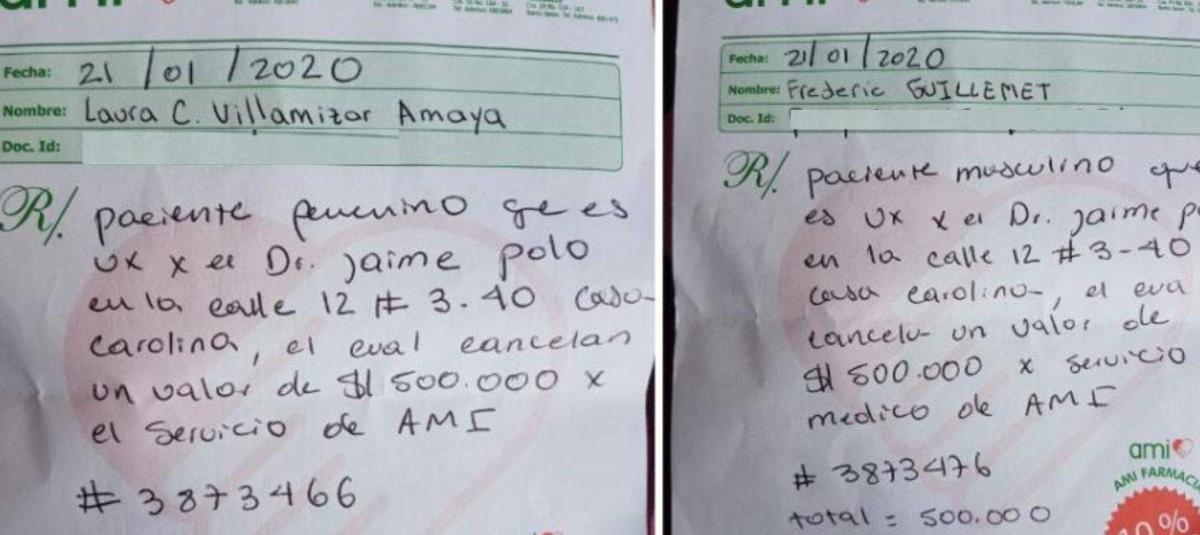 Fecha: 21/01/2020
Nombre: Laura C. Villamizar Amaya
Doc. Id:
R/. paciente femenino qe es
vx x el Dr. jaime polo
en la calle 12 # 3.40 casa
carolina, el cual cancelan
un valor de $ 500.000 x
el servicio de AMI
# 3873466
Fecha: 21/01/2020
Nombre: Frederic GUILLEMET
Doc. Id:
R/. paciente masculino que
es vx x el Dr. jaime p
en la calle 12 # 3-40
casa carolina, el cua
cancela un valor de
$ 500.000 x servicio
medico de AMI
# 3873476
total = 500.000
ami
AMI FARMACI
10 %